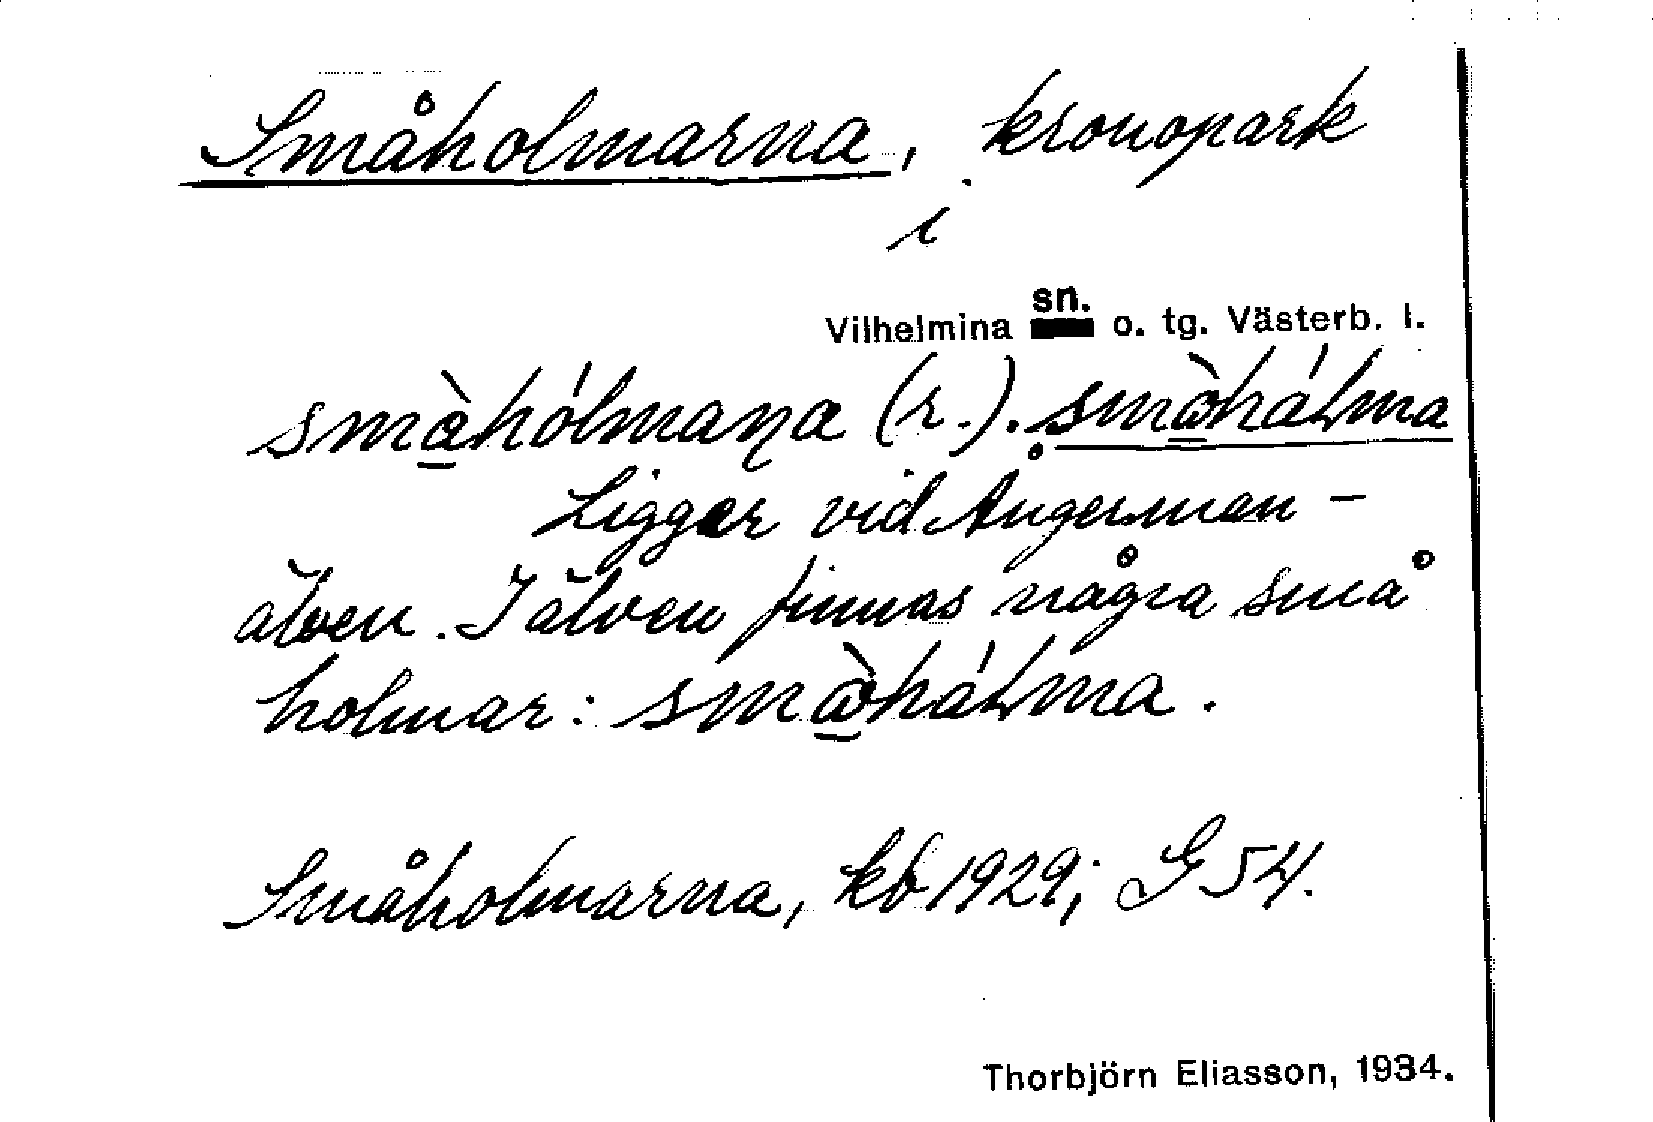 Småholmarna, kronopark
i
Vilhelmina sn. o. tg. Västerb. l.
smàhólmaņa (r.). små̀háLma
Ligger vid Ångerman-
älven. I älven finnas några små
holmar: små̀háLma.
Småholmarna, kb 1929; G 54.
Thorbjörn Eliasson, 1934.